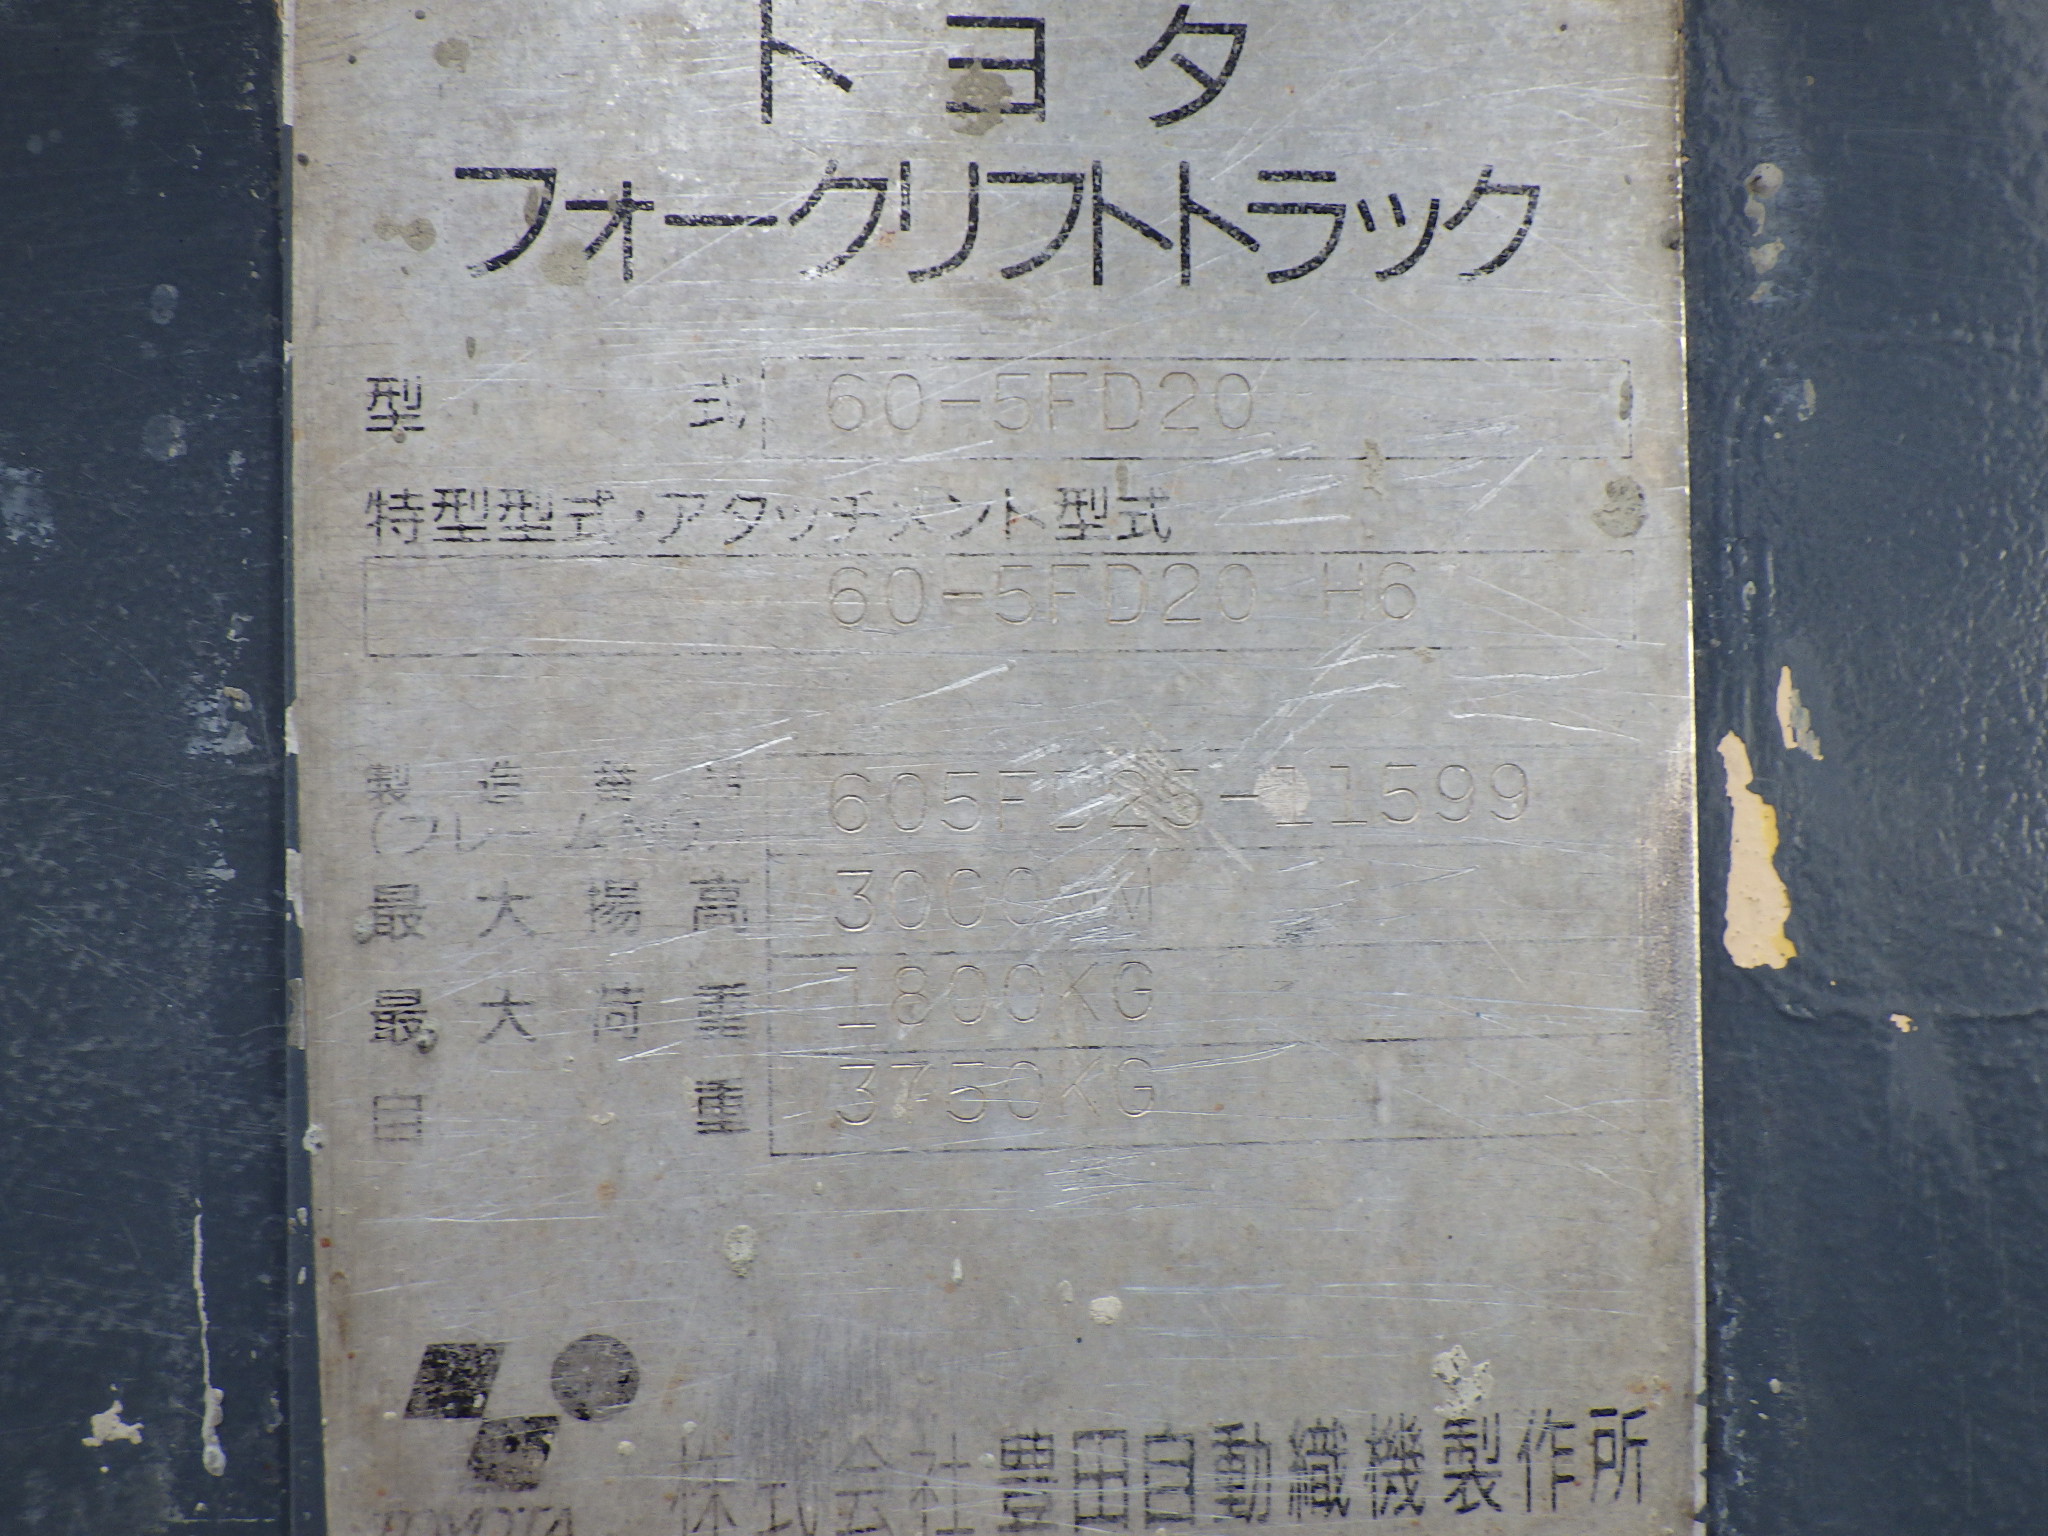 トヨタ
フォークリフトトラック
型 式 60-5FD20
特型型式・アタッチメント型式
60-5FD20 H6
製造番号 605FD25-11599
(フレームNO.)
最大揚高 3000MM
最大荷重 1800KG
自重 3750KG
株式会社豊田自動織機製作所